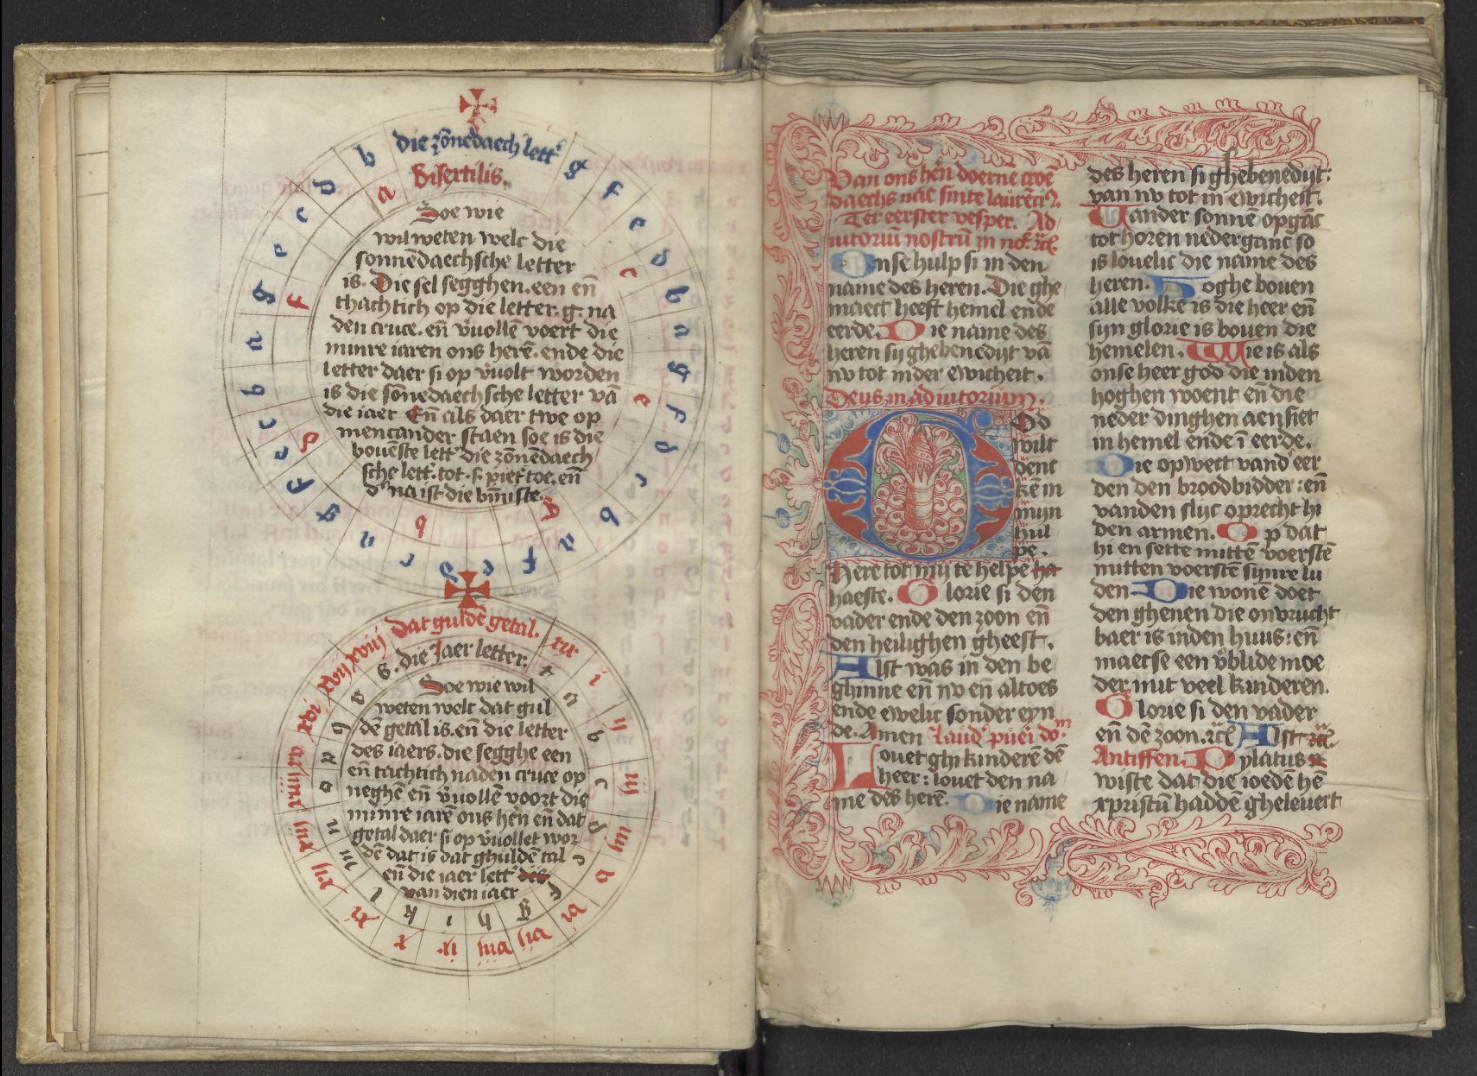 die zōnedaech lett'
b g f e d b a g f d c b a f e d c a g f e c b a g e c d
Bisextilis.
a c e g b d f
Soe wie
wil weten welc die
sonnēdaechsche letter
is. Die sel segghen. een eñ
thachtich op die letter. g. na
den cruce. eñ v̄uollē voert die
minre iaren ons herē. ende die
letter daer si op v̄uolt worden
is die sōnedaechsche letter vā
die iaer Eñ als daer twe op
menĉander staen soe is die
bouēste lett' die zōnēdaech
sche lett'. tot. s. piet' toe. eñ
d'na ist die vnīste.
Dat guldē getal. xix i ij iij iiij v vi vij viij ix x xi xij xiij xiiij xv xvi xvij xviij
die Jaer letter. t a b c d e f g h i k l m n o p q r s
Soe wie wil
weten welc dat gul
dē getal is. eñ die letter
des iaers. die segghe een
eñ tachtich naden cruce op
neghē eñ v̄uollē voort die
minre iarē ons hēn eñ dat
getal daer si op v̄uollet wor
dē dat is dat ghuldē tal
eñ die iaer lett' des
van dien iaer
Van ons hēn doerne croē
daechs nae sinte laurēci9.
Ter eerster vesper. Ad
iutoriū nostrū in no͞e. zc̄
Onse hulp si in den
name des heren. Die ghe
maect heeft hemel ende
eerde. Die name des
heren sy ghebenedijt vā
nv tot inder ewicheit.
Deus in adiutorium.
God
wilt
dent
kē in
mijn
hul
pe.
Here tot mij te helpe ha
haeste. Glorie si den
vader ende den zoon eñ
den heilighen gheest.
Alst was in den be
ghinne eñ nv eñ altoes
ende ewelic sonder eyn
de. Amen laud' pūeī dōm
Louet ghi kinderē dē
heer: louet den na
me des herē. Die name
des heren si ghebenedijt:
van nv tot in ewicheit.
Vander sonnē opgāc
tot horen nederganc so
is louelic die name des
heren. Hoghe bouen
alle volke is die heer eñ
syn glorie is bouen die
hemelen. Wie is als
onse heer god die inden
hoghen woent eñ die
neder dinghen aensiet
in hemel ende ī eerde.
Die opwect vand' eer
den den broodbidder: eñ
vanden slijc oprecht hi
den armen. Op dat
hi en sette mittē voerstē
mitten voerstē sijnre lu
den. Die wonē doet
den ghenen die onvrucht
baer is inden huus: eñ
maectse een v̄blide moe
der mit veel kinderen.
Glorie si den vader
eñ dē zoon. zc̄ Alst zc̄.
Antiffen. Pylatus
wiste dat die ioedē hē
xpristū haddē gheleuert